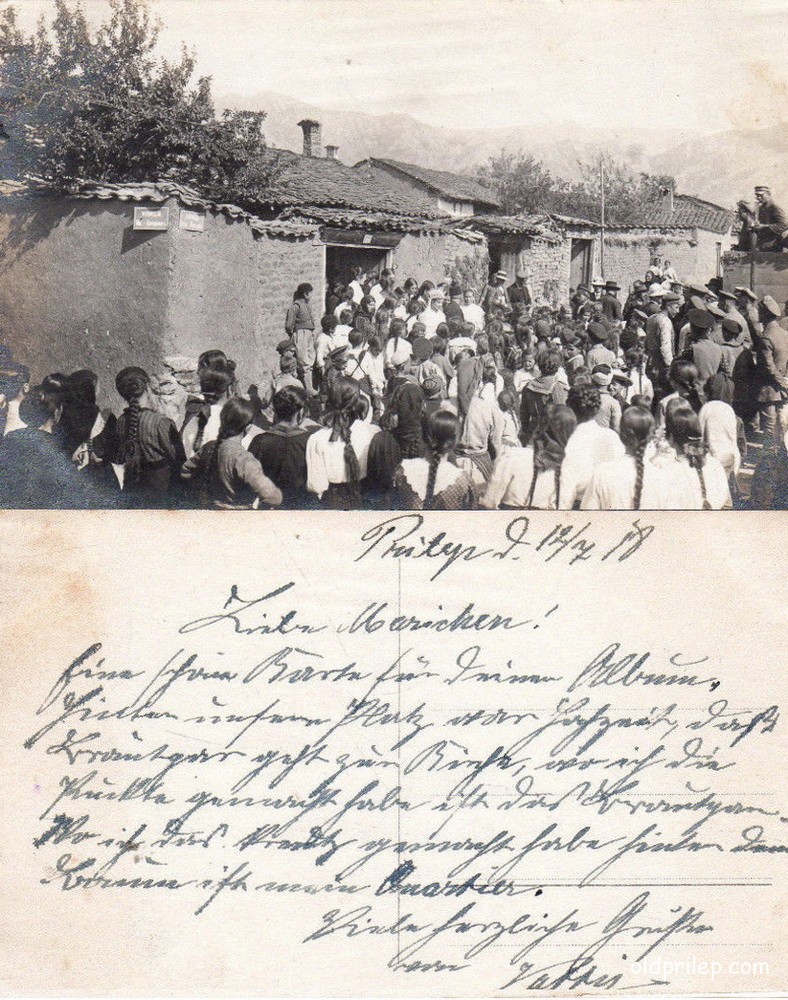 Prilep d. 12/7 18
Liebe Mariechen!
Eine schöne Karte für deinen Album.
Hinter unserm Platz war Hohzeit, daß
Brautpar geht zur Kirche, wo ich die
Punkte gemacht habe ist das Brautpar.
Wo ich das Kreutz gemacht habe hinter dem
Baum ist mein Quartier.
Viele herzliche Grüße
von
oldprilep.com